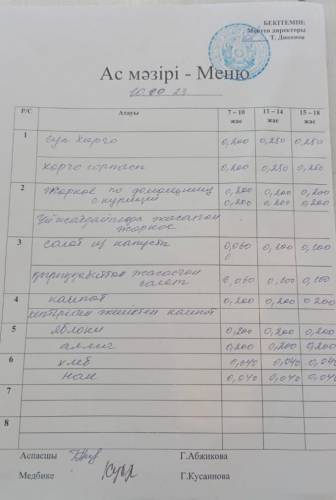 БЕКІТЕМІН:
Мектеп директоры
Т. Джонов
Ас мәзірі - Меню
10.10 23
Р/С Атауы 7 – 10 жас 11 – 14 жас 15 – 18 жас
1 суп харчо 0,200 0,250 0,250
харчо сорпасы 0,200 0,250 0,250
2 Жаркое по домашнему 0,200 0,200 0,200
с курицей 0,200 0,200 0,200
жасалған
жаркое
3 салат из капусты 0,060 0,100 0,100
0
қырыққабаттан жасалған 0,060 0,100 0,100
салат
4 компот 0,200 0,200 0,200
кептірілген жемістен компот
5 яблоки 0,200 0,200 0,200
алма 0,200 0,200 0,200
6 хлеб 0,040 0,040 0,040
нан 0,040 0,040 0,040
7
8
Аспасшы Г.Абжикова
Медбике Г.Кусаинова